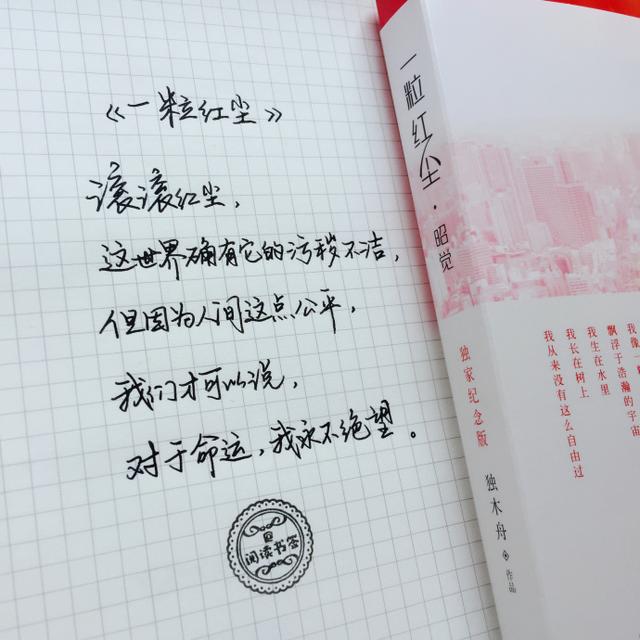 《一粒红尘》
滚滚红尘，
这世界确有它的污秽不洁，
但因为人间这点公平，
我们才可以说，
对于命运，我永不绝望。
阅读书签
一粒红尘·昭觉
独家纪念版
独木舟 作品
飘浮于浩瀚的宇宙
我生在水里
我长在树上
我从来没有这么自由过